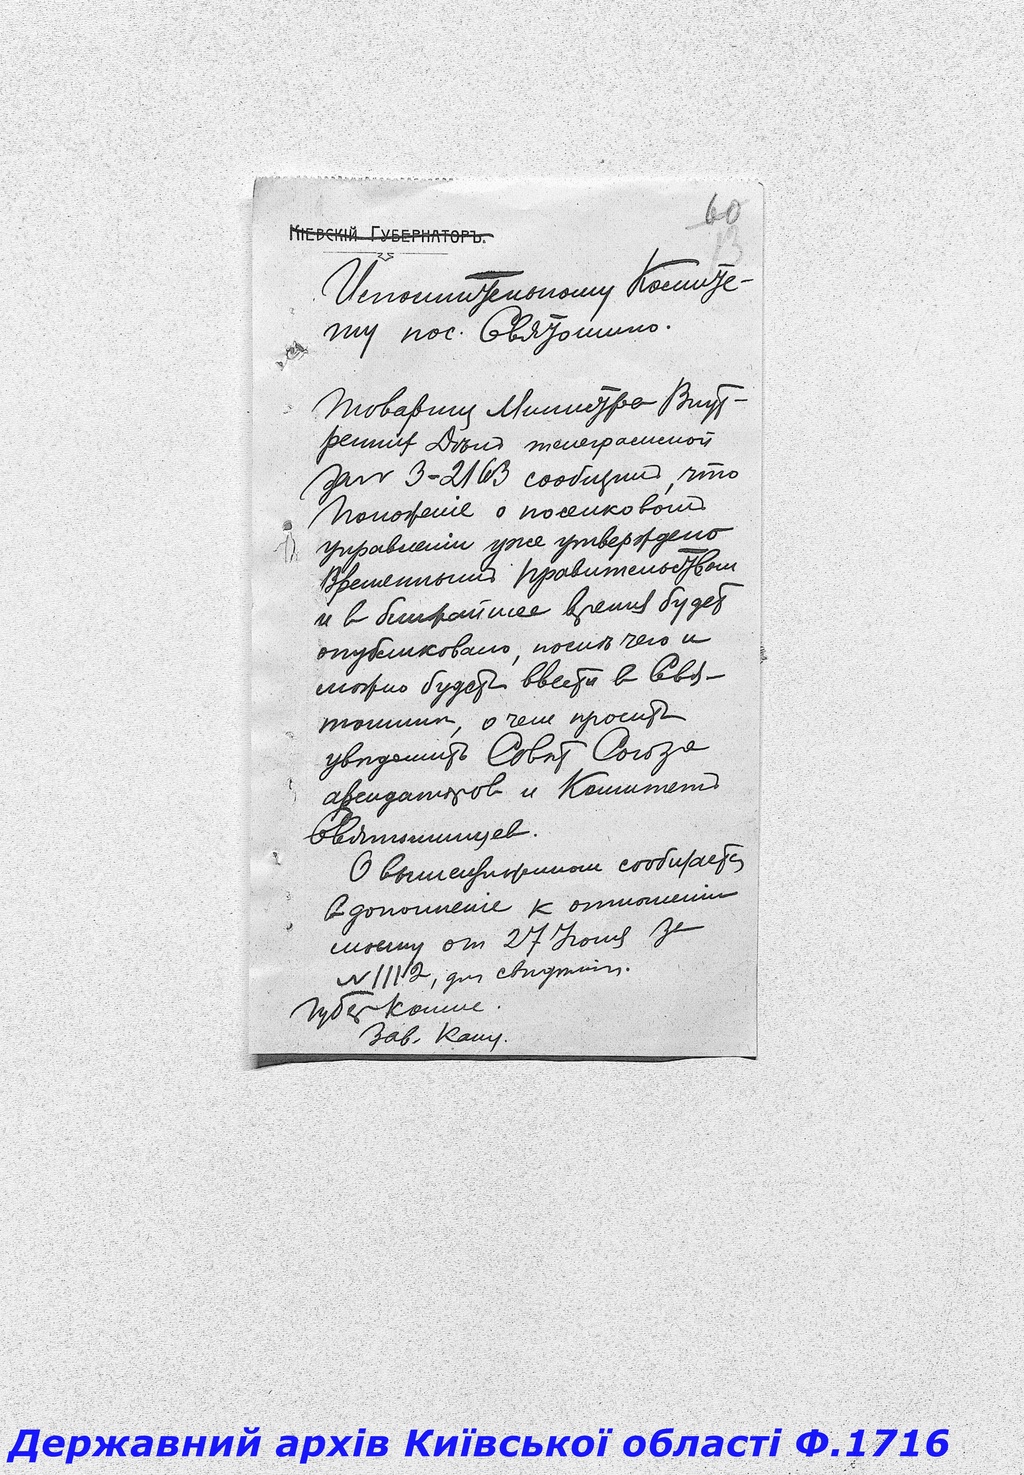 60
13
Кіевскій Губернаторъ.
Исполнительному Комите-
ту пос. Святошино.
Товарищ Министра Внут-
ренних Дѣлъ телеграммой
за № 3-2163 сообщил, что
Положеніе о поселковом
управленіи уже утверждено
Временным Правительством
и в ближайшее время будет
опубликовано, послѣ чего и
можно будетъ ввести в Свя-
тошинѣ, о чем проситъ
увѣдомить Совѣт Союза
арендаторов и Комитет
Святошинцев.
О вышеизложенном сообщается
в дополненіе к отношенію
моему от 27 Іюня за
№ 1112, для свѣдѣнія.
Губер Комис.
Зав. Канц.
Державний архів Київської області Ф.1716